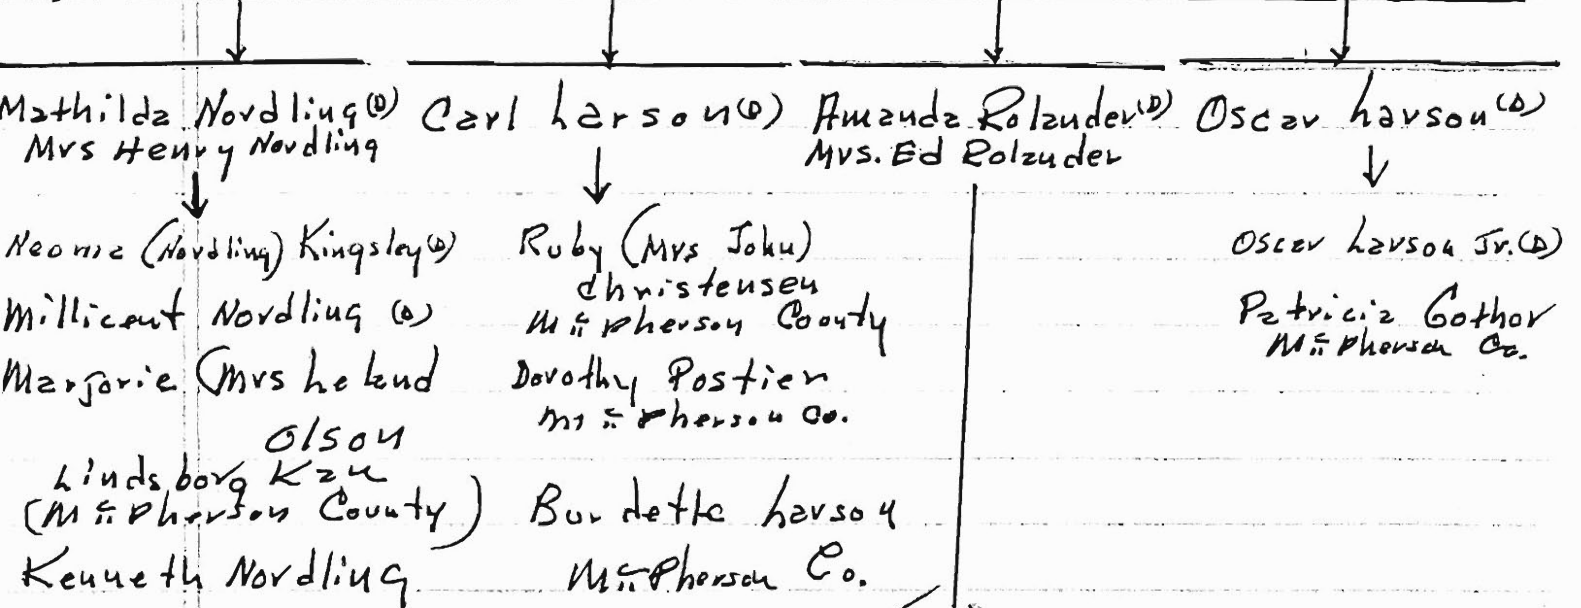 Mathilda Nordling (D)
Mrs Henry Nordling
Neoma (Nordling) Kingsley (D)
Millicent Nordling (D)
Marjorie (Mrs Leland
Olson
Lindsborg Kan
(McPherson County)
Kenneth Nordling
Carl Larson (D)
Ruby (Mrs John)
Christensen
McPherson County
Dorothy Postier
McPherson Co.
Burdette Larson
McPherson Co.
Amanda Rolander (D)
Mrs. Ed Rolander
Oscar Larson (D)
Oscar Larson Jr. (D)
Patricia Gothor
McPherson Co.